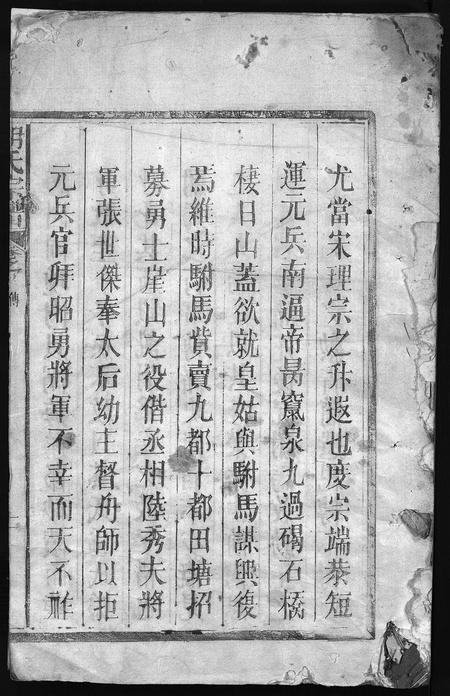 尤當宋理宗之升遐也度宗端恭短
運元兵南逼帝昺竄泉九過碣石橋
棲日山蓋欲就皇姑與駙馬謀興復
焉維時駙馬貲賣九都十都田塘招
募勇士崖山之役偕丞相陸秀夫將
軍張世傑奉太后幼主督舟師以拒
元兵官拜昭勇將軍不幸而天不祚
氏 譜 傳